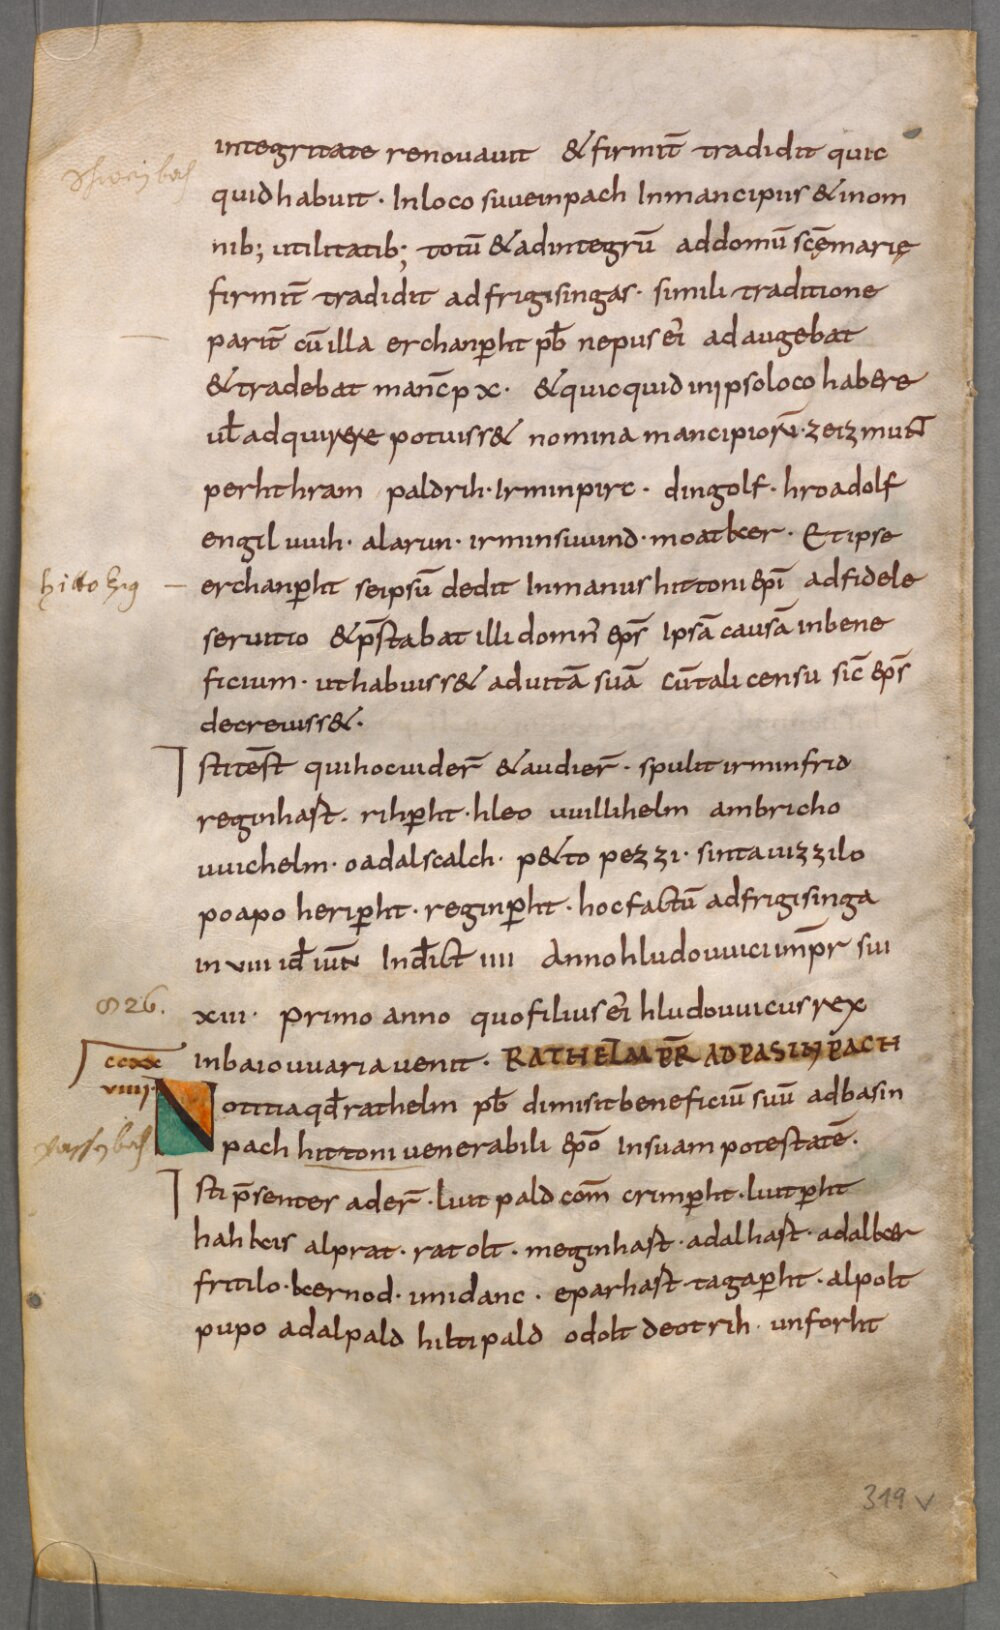 integritate renouauit & firmit̄ tradidit quic
quid habuit · In loco suueinpach In mancipiis & in om
nib; utilitatib; totū & ad integrū ad domū scē marię
firmit̄ tradidit ad frigisingas · simili traditione
parit̄ cū illa erchanꝑht pb̄ nepus ei ad augebat
& tradebat manc̄p x · & quicquid in ipso loco habere
ul̄ adquirere potuiss& nomina mancipiorū · zeizmunt
perhthram paldrih · Irminpirc · dingolf · hroadolf
engil uuih · alarun · irminsuuind · moatker · Et ipse
hitto Ezig
erchanꝑht seipsū dedit In manus hittoni ep̄i ad fidele
seruitio & p̄stabat illi domn̄ ep̄s Ipsā causā in bene
ficium · ut habuiss& ad uitā suā cū tali censu sic̄ ep̄s
decreuiss& ·
Isti test̄ qui hoc uider̄ & audier̄ · spulit irminfrid
reginhast · rihꝑht · hleo uuillihelm ambricho
uuichelm · oadalscalch · p&to pezzi · sintauizzilo
poapo heriꝑht · reginꝑht · hoc factū ad frigisinga
in viii id̄ iuń Ind̄ict iiii Anno hludouuici imp̄r sui
826.
xiii · primo anno quo filius ei hludouuicus rex
in baiouuaria uenit · RATHELM PR̄ AD PASINPACH
ccxx
viiii ·
Notitia qd̄ rathelm pb̄ dimisit beneficiū suū ad basin
pach hittoni uenerabili ep̄o In suam potestatē ·
Isti p̄senter ader̄ · liutpald com̄ crimꝑht · liutꝑht
hahkis alprat · ratolt · meginhast · adalhast · adalker
fritilo · kernod · imidanc · eparhast · tagaꝑht · alpolt
pupo adalpald hiltipald odolt deotrih · unforht
319 v